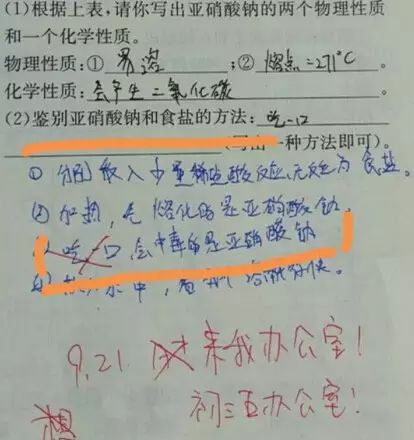 (1)根据上表,请你写出亚硝酸钠的两个物理性质
和一个化学性质。
物理性质:① 易溶 ;② 熔点=271℃ 。
化学性质: 会产生二氧化碳 。
(2)鉴别亚硝酸钠和食盐的方法: 吃一口
一种方法即可)。
① 分别取少量稀盐酸反应,无反应为食盐。
② 加热,先熔化的是亚硝酸钠。
吃一口 会中毒的是亚硝酸钠
水中,看
9.21 来我办公室!
初三五办公室!
想